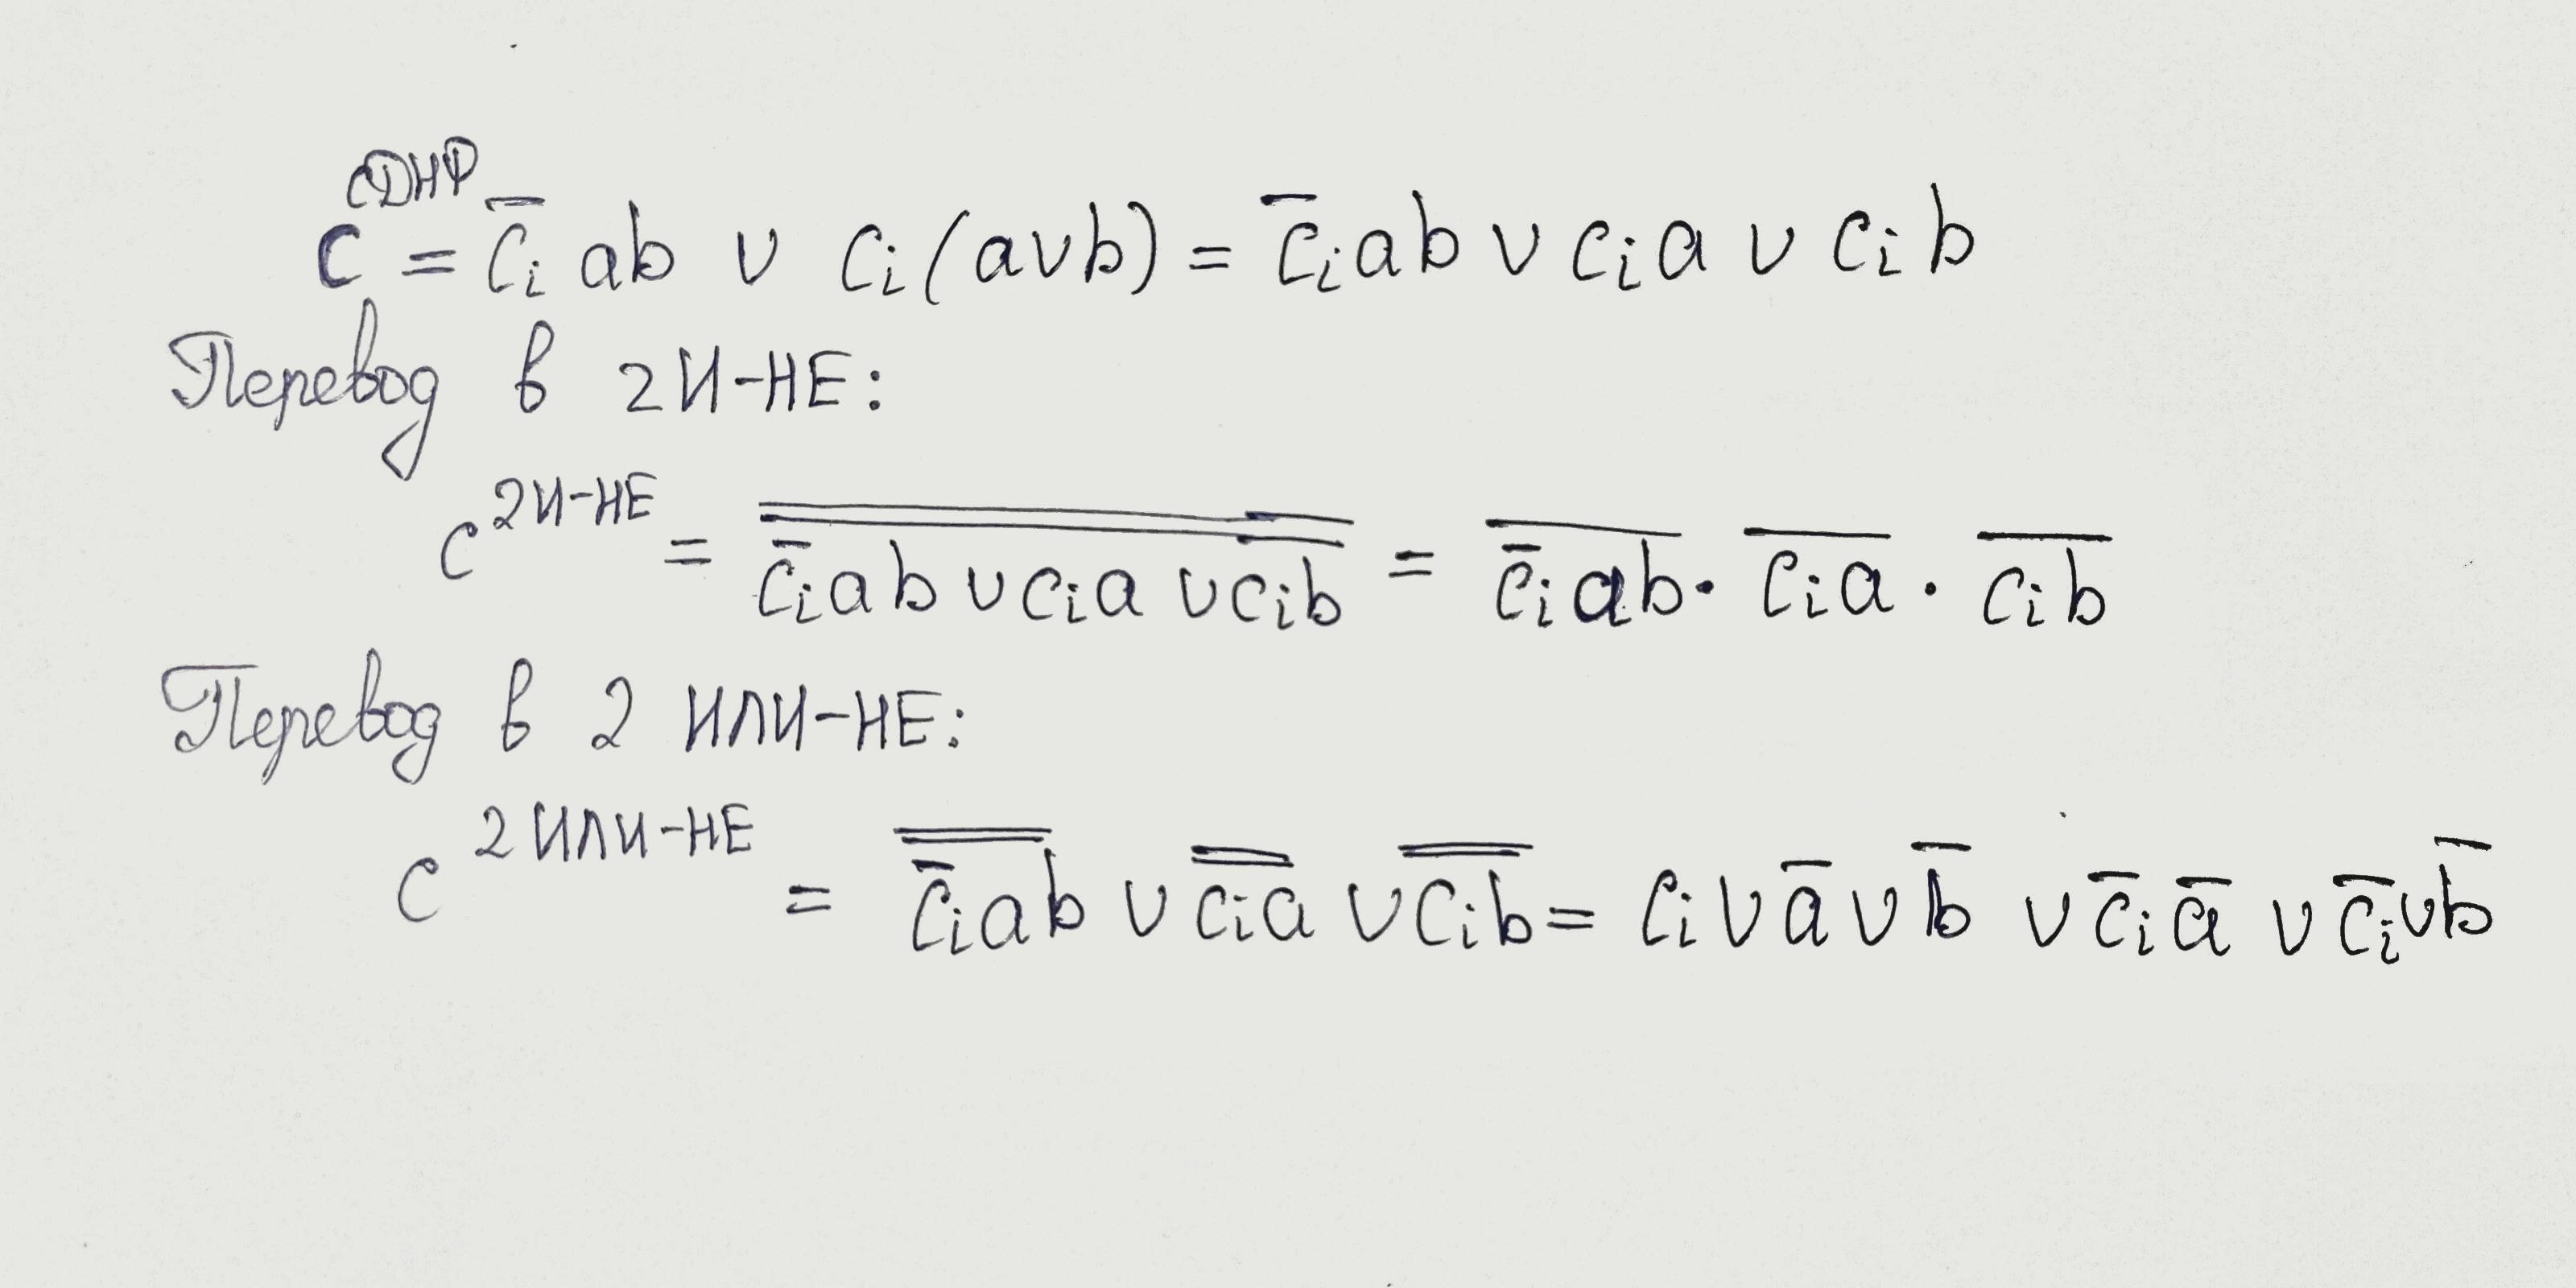 c^СДНФ = c̅ᵢ ab ∨ cᵢ(a∨b) = c̅ᵢab ∨ cᵢa ∨ cᵢb
Перевод в 2И-НЕ:
c^2И-НЕ = \overline{\overline{c̅ᵢab ∨ cᵢa ∨ cᵢb}} = \overline{c̅ᵢab} · \overline{cᵢa} · \overline{cᵢb}
Перевод в 2 ИЛИ-НЕ:
c^2ИЛИ-НЕ = \overline{\overline{c̅ᵢab}} ∨ \overline{\overline{cᵢa}} ∨ \overline{\overline{cᵢb}} = cᵢ ∨ a̅ ∨ b̅ ∨ c̅ᵢa̅ ∨ c̅ᵢ∨b̅